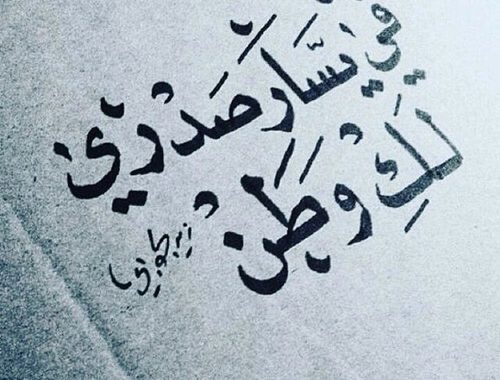 في يَسَار صَدْري
لَكِ وَطَنْ